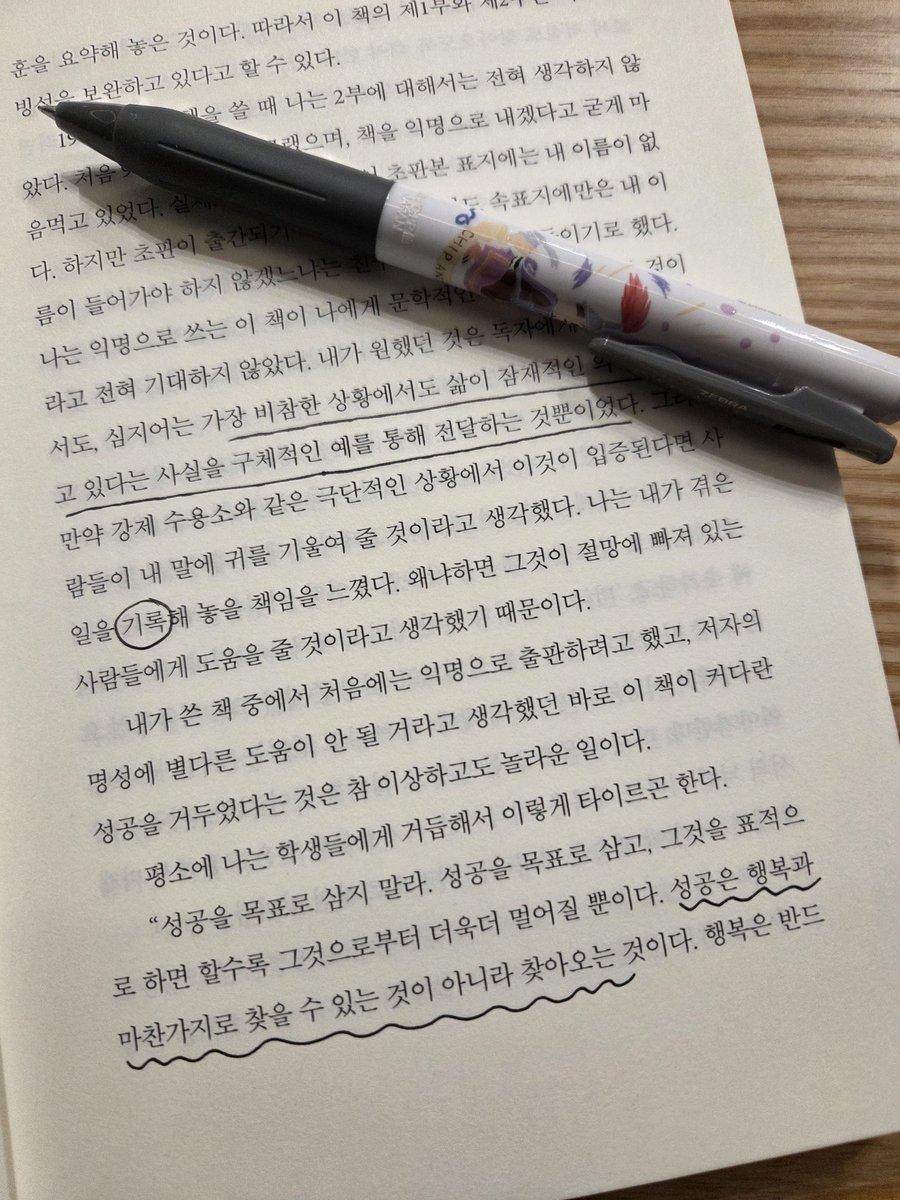 훈을 요약해 놓은 것이다. 따라서 이 책의 제1부와 제2부는
빙성을 보완하고 있다고 할 수 있다.
19 책을 쓸 때 나는 2부에 대해서는 전혀 생각하지 않
았다. 처음 9 했으며, 책을 익명으로 내겠다고 굳게 마
음먹고 있었다. 실제 초판본 표지에는 내 이름이 없
다. 하지만 초판이 출간되기 속표지에만은 내 이
름이 들어가야 하지 않겠느냐는 친구 이기로 했다.
나는 익명으로 쓰는 이 책이 나에게 문학적인 것이
라고 전혀 기대하지 않았다. 내가 원했던 것은 독자에게
서도, 심지어는 가장 비참한 상황에서도 삶이 잠재적인
고 있다는 사실을 구체적인 예를 통해 전달하는 것뿐이었다.
만약 강제 수용소와 같은 극단적인 상황에서 이것이 입증된다면 사
람들이 내 말에 귀를 기울여 줄 것이라고 생각했다. 나는 내가 겪은
일을 기록해 놓을 책임을 느꼈다. 왜냐하면 그것이 절망에 빠져 있는
사람들에게 도움을 줄 것이라고 생각했기 때문이다.
내가 쓴 책 중에서 처음에는 익명으로 출판하려고 했고, 저자의
명성에 별다른 도움이 안 될 거라고 생각했던 바로 이 책이 커다란
성공을 거두었다는 것은 참 이상하고도 놀라운 일이다.
평소에 나는 학생들에게 거듭해서 이렇게 타이르곤 한다.
“성공을 목표로 삼지 말라. 성공을 목표로 삼고, 그것을 표적으
로 하면 할수록 그것으로부터 더욱더 멀어질 뿐이다. 성공은 행복과
마찬가지로 찾을 수 있는 것이 아니라 찾아오는 것이다. 행복은 반드
CHIP AN
ZEBRA